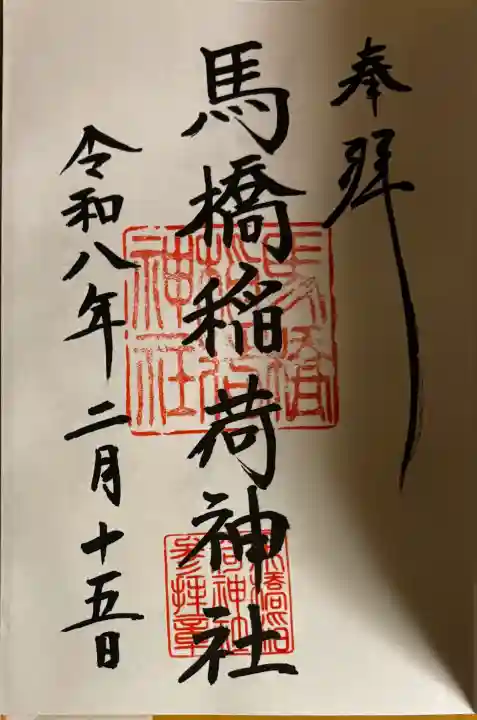 奉拝
馬橋稲荷神社
令和八年二月十五日
馬橋
稲荷
神社
馬橋稲
荷神社
参拝章